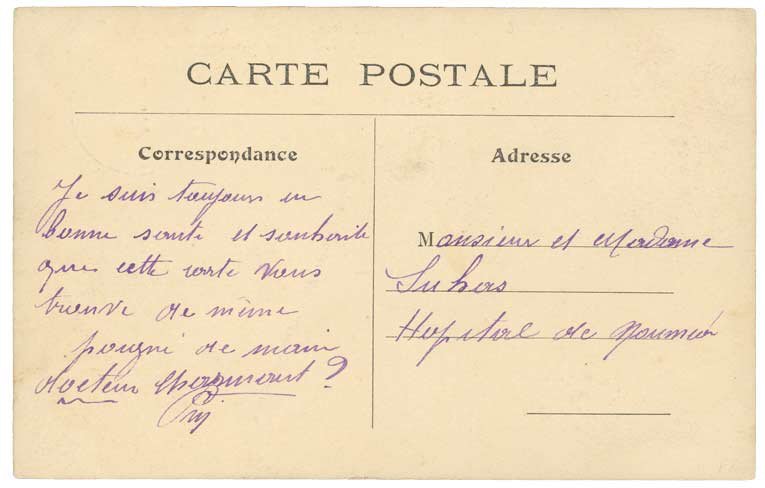 CARTE POSTALE
Correspondance
Je suis toujours en
bonne santé et souhaite
que cette carte vous
trouve de même
poigné de main
docteur
Adresse
Monsieur et Madame
Hopital de